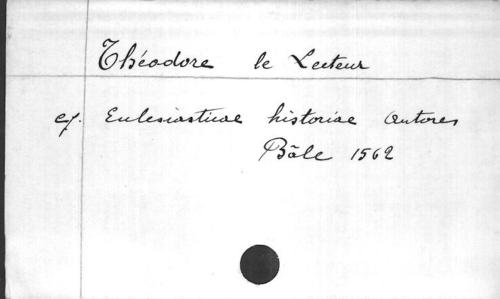 Théodore le Lecteur
cf. Ecclesiasticae historiae Autores
Bâle 1562